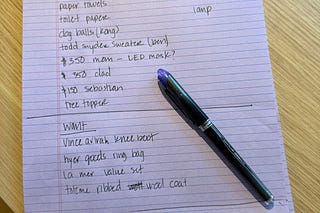 paper towels
lamp
toilet papere
dog balls (kong)
todd snyder sweater (ben)
$350 mom - LED mask?
$350 dad
$150 sebastian
tree topper
WANT
vince knee boot
hyer goods ring bag
la mer value set
ribbed wool coat